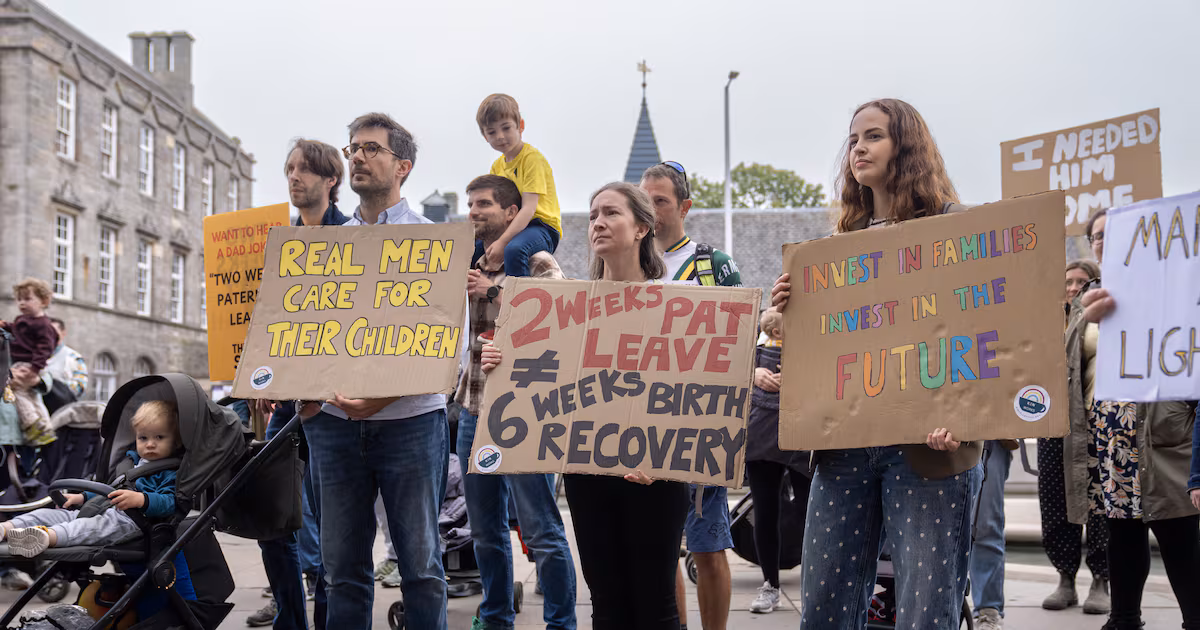 WANT TO HEAR
A DAD JOKE?
"TWO WE
PATER
LEA
REAL MEN
CARE FOR
THEIR CHILDREN
2 WEEKS PAT
LEAVE
≠
6 WEEKS BIRTH
RECOVERY
INVEST IN FAMILIES
INVEST IN THE
FUTURE
I NEEDED
HIM
OME
MA
LIGH